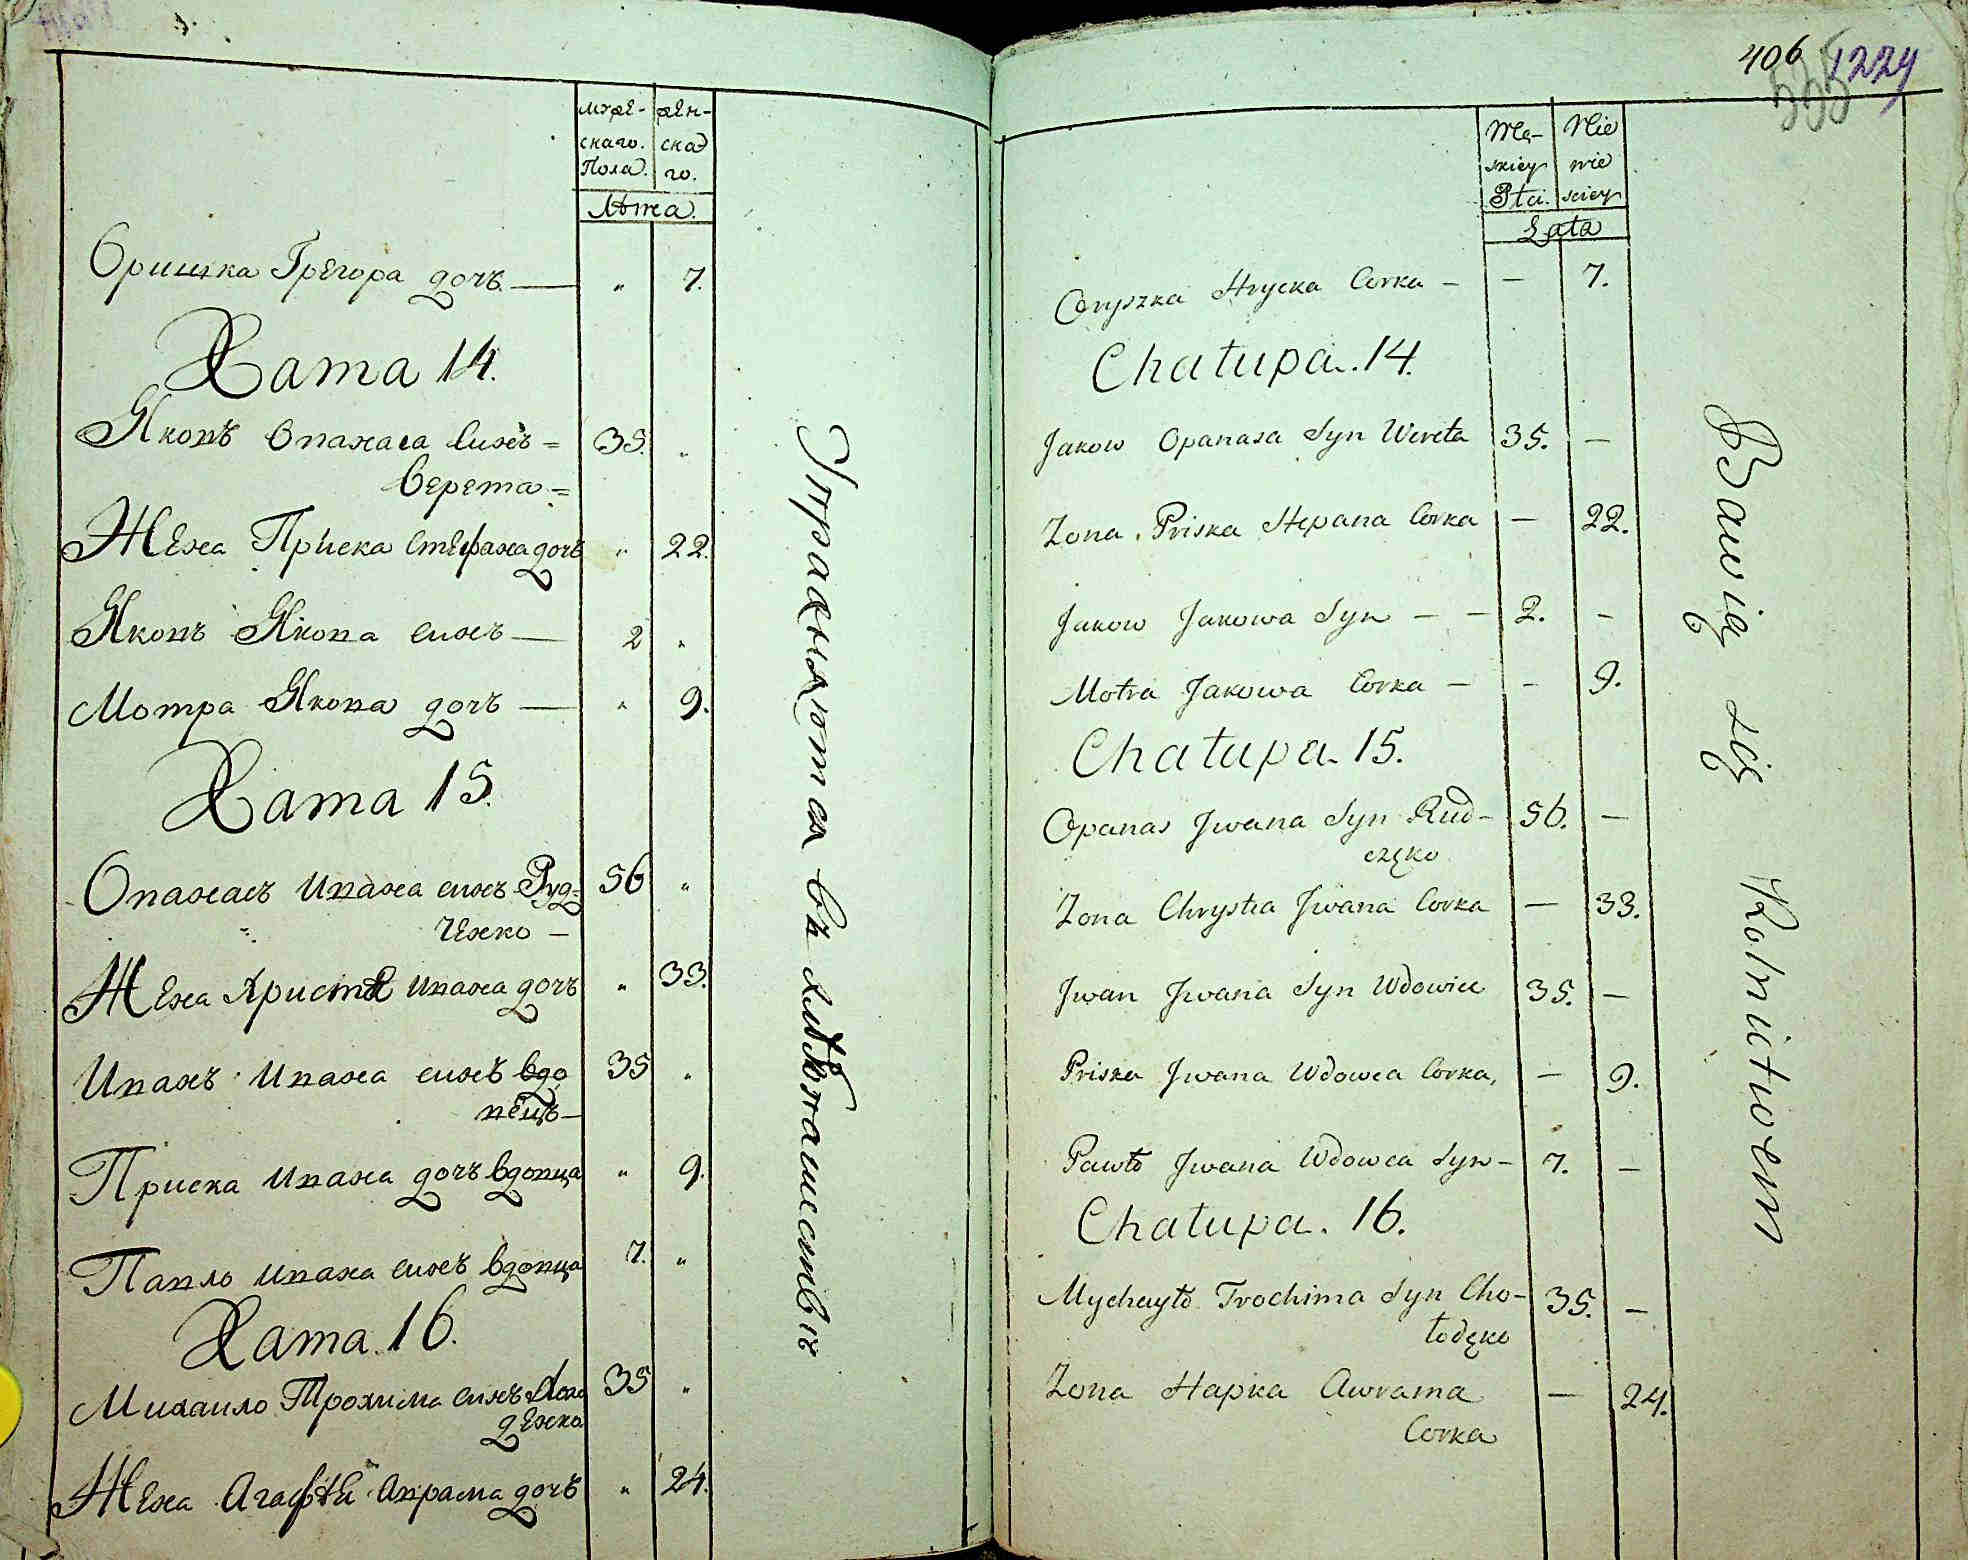 муже- жен-
скаго. скаго.
Пола.
Лѣта.
Оришка Грегора дочь — „ 7.
Хата 14.
Яковъ Опанаса сынъ = 35. „
Верета =
Жена Приска Стефана дочь „ 22.
Яковъ Якова сынъ — 2 „
Мотра Якова дочь — „ 9.
Хата 15.
Опанасъ Ивана сынъ Руд= 56 „
ченко —
Жена Христя Ивана дочь „ 33.
Иванъ Ивана сынъ вдо 35 „
вецъ —
Приска Ивана дочь вдовца „ 9.
Павло Ивана сынъ вдовца 7. „
Хата. 16.
Михаило Трохима сынъ Холо 35 „
денко
Жена Агафія Аврама дочь „ 24.
Упражняются въ хлѣбопашествѣ
406 1224
535
Mę- Nie
skiey wie
Płci. sciey
Lata
Oryszka Hrycka Corka - — 7.
Chałupa. 14.
Jakow Opanasa Syn Wereta 35. —
Zona Priska Stepana Corka — 22.
Jakow Jakowa Syn — — 2. -
Motra Jakowa Corka — - 9.
Chałupa. 15.
Opanas Jwana Syn Rud- 56. —
częko
Zona Chrystia Jwana Corka — 33.
Jwan Jwana Syn Wdowiec 35. —
Priska Jwana Wdowca Corka, — 9.
Pawło Jwana Wdowca Syn - 7. —
Chałupa. 16.
Mychayło Trochima Syn Cho- 35. —
łodęko
Zona Hapka Awrama — 24.
Corka
Bawią się Rolnictwem